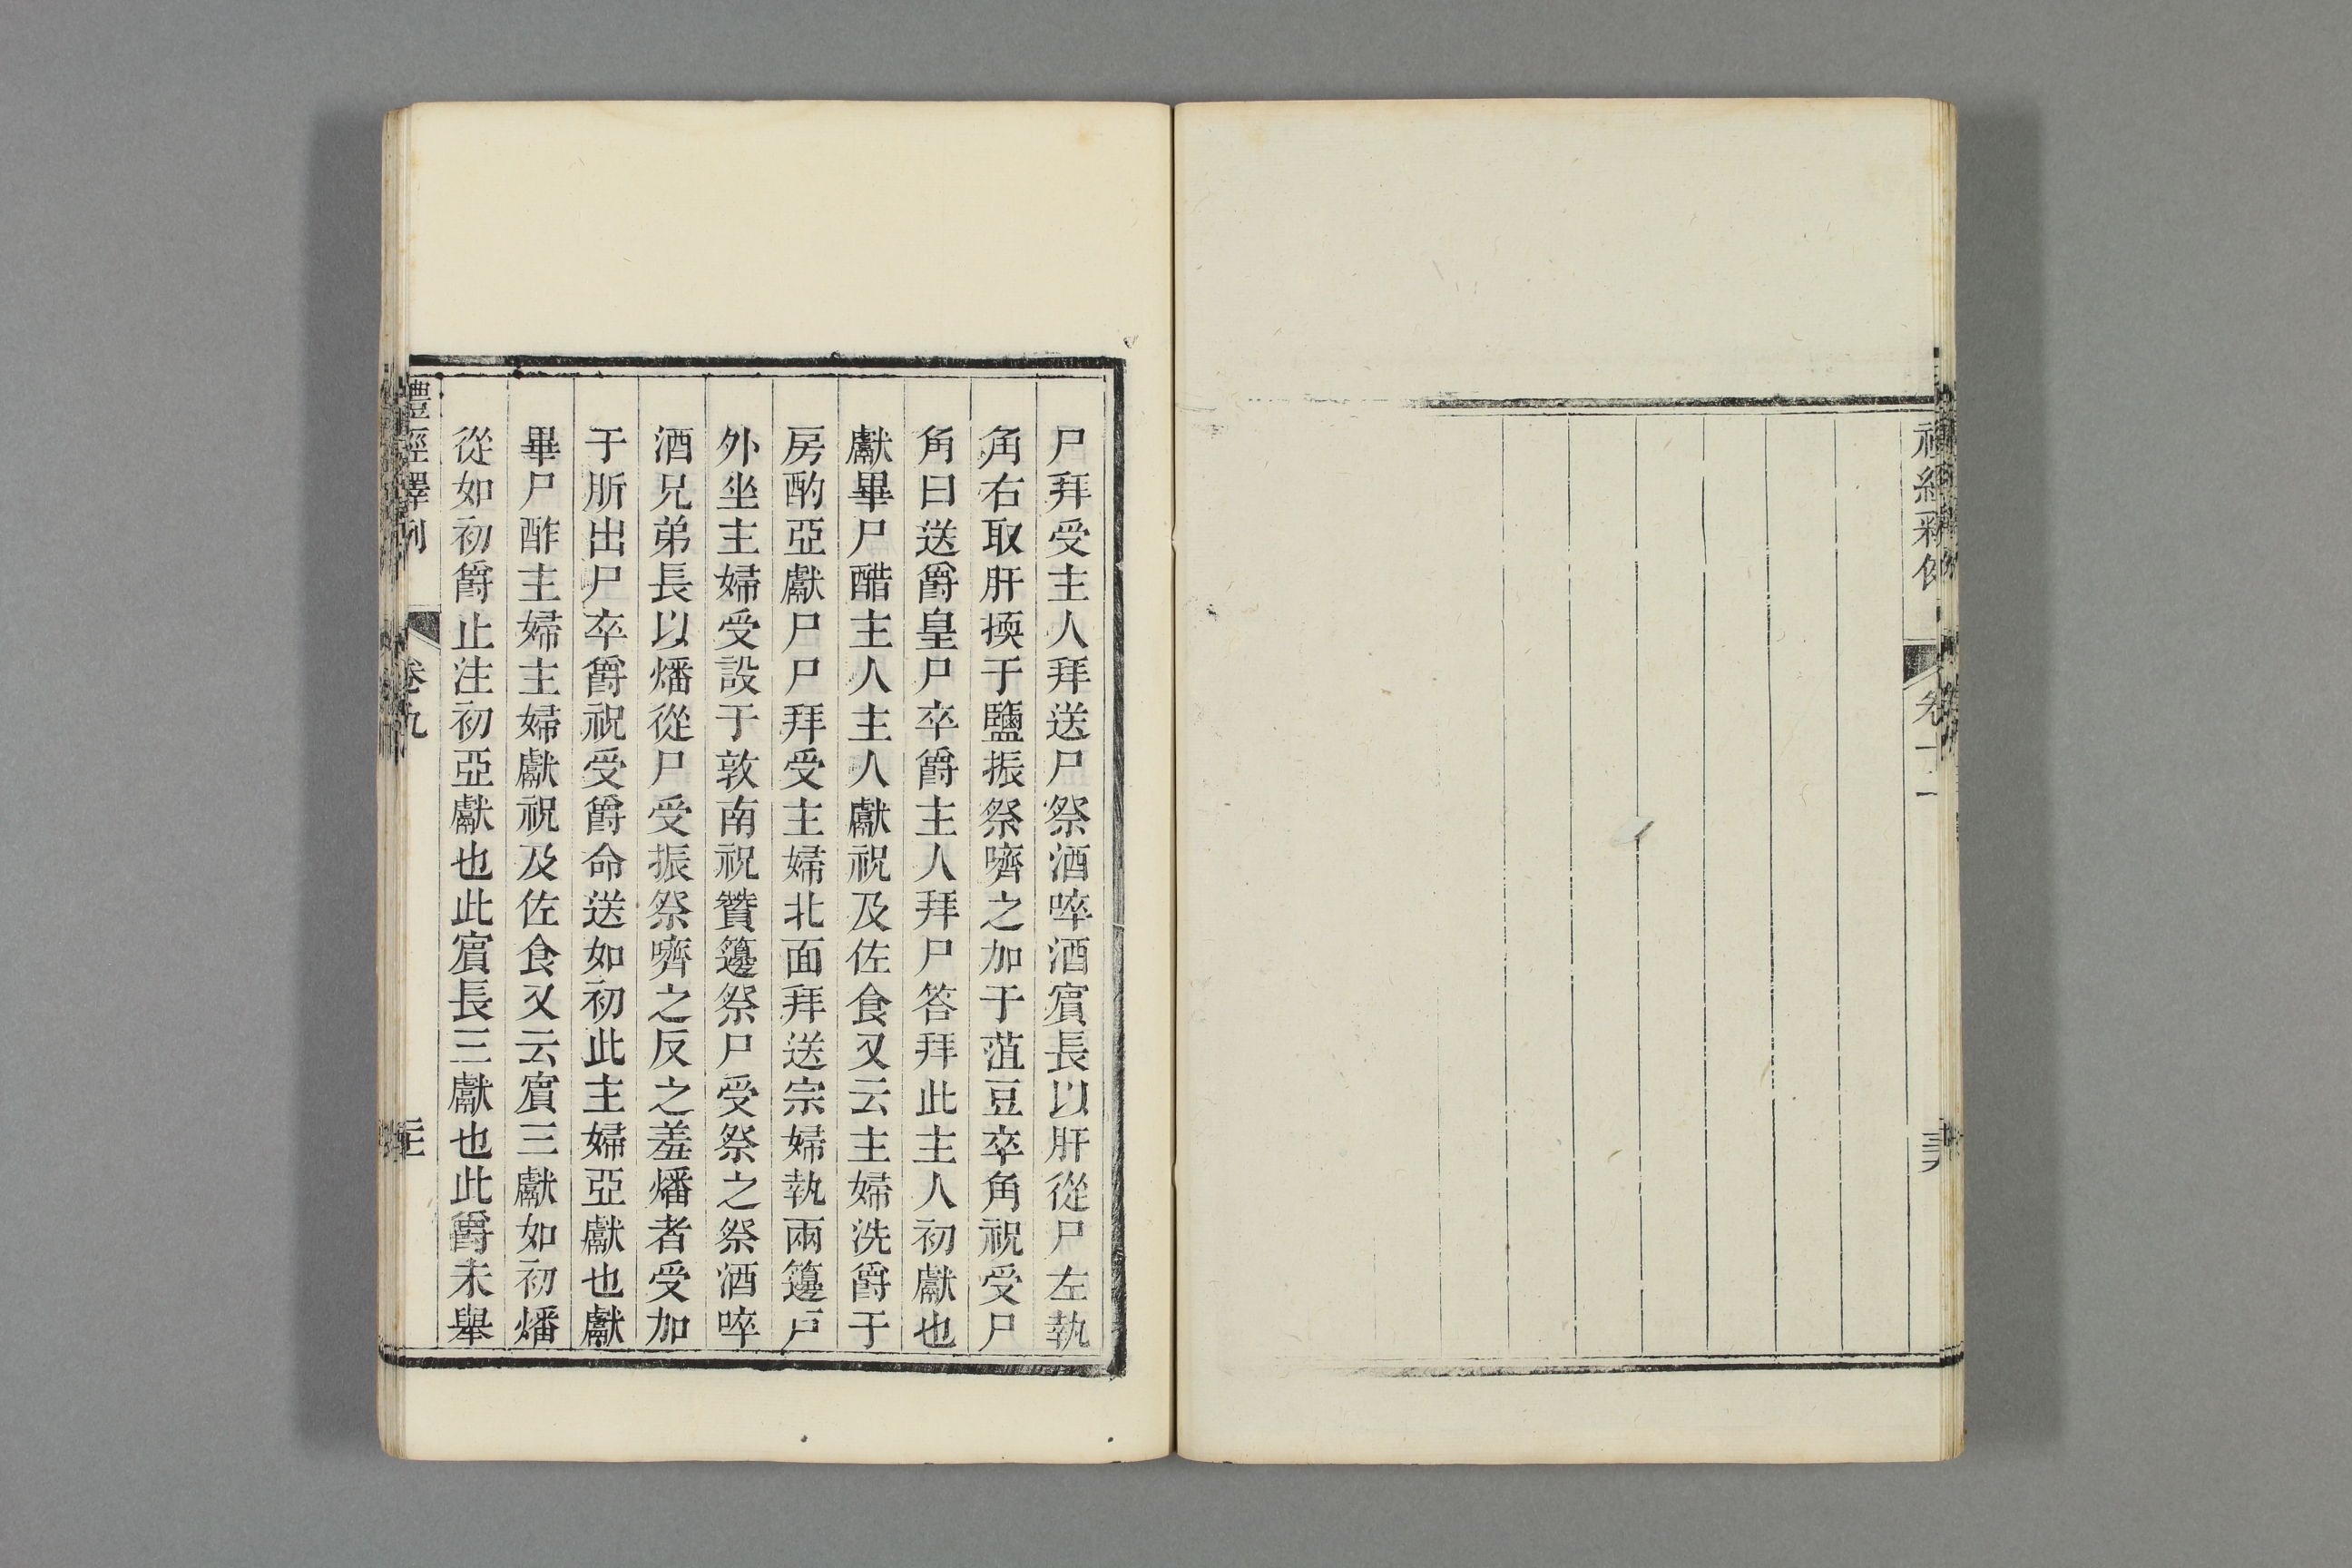 尸拜受主人拜送尸祭酒啐酒賓長以肝從尸左執
角右取肝㨎于鹽振祭嚌之加于菹豆卒角祝受尸
角曰送爵皇尸卒爵主人拜尸答拜此主人初獻也
獻畢尸醋主人主人獻祝及佐食又云主婦洗爵于
房酌亞獻尸尸拜受主婦北面拜送宗婦執兩籩戸
外坐主婦受設于敦南祝贊籩祭尸受祭之祭酒啐
酒兄弟長以燔從尸受振祭嚌之反之羞燔者受加
于肵出尸卒爵祝受爵命送如初此主婦亞獻也獻
畢尸酢主婦主婦獻祝及佐食又云賓三獻如初燔
從如初爵止注初亞獻也此賓長三獻也此爵未舉
禮經釋例
卷九